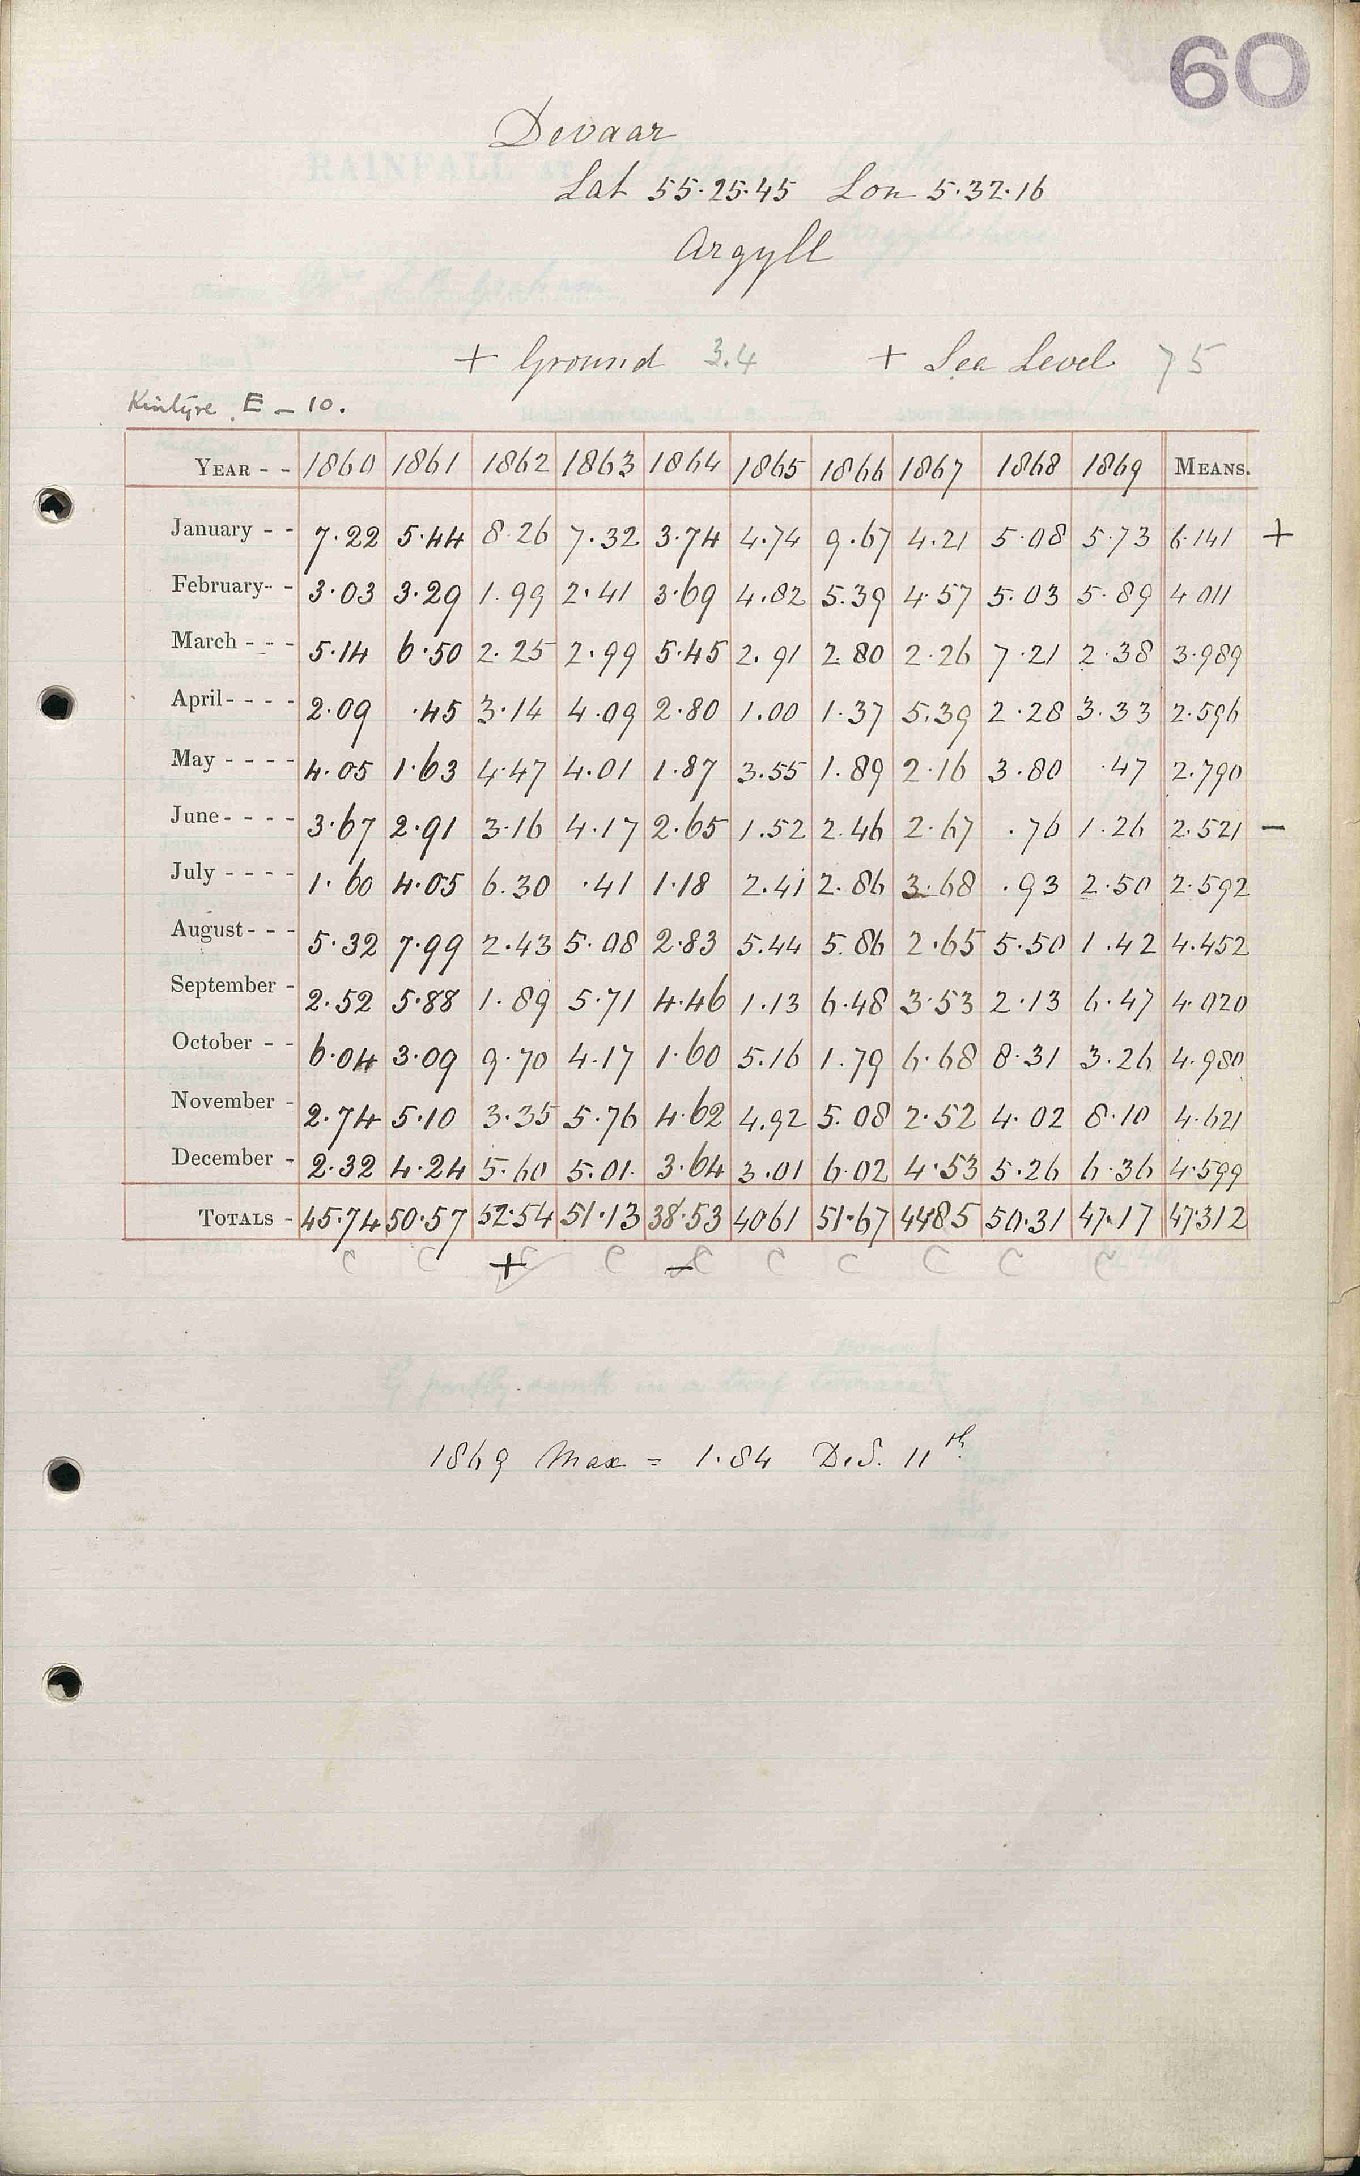 60
Devaar
Lat 55.25.45 Lon 5.32.16
Argyll
+ Ground 3.4 + Sea Level 75
Kintyre E - 10.
YEAR - - 1860 1861 1862 1863 1864 1865 1866 1867 1868 1869 MEANS.
January - - 7.22 5.44 8.26 7.32 3.74 4.74 9.67 4.21 5.08 5.73 6.141 +
February - - 3.03 3.29 1.99 2.41 3.69 4.82 5.39 4.57 5.03 5.89 4.011
March - - - 5.14 6.50 2.25 2.99 5.45 2.91 2.80 2.26 7.21 2.38 3.989
April - - - - 2.09 .45 3.14 4.09 2.80 1.00 1.37 5.39 2.28 3.33 2.596
May - - - - 4.05 1.63 4.47 4.01 1.87 3.55 1.89 2.16 3.80 .47 2.790
June - - - - 3.67 2.91 3.16 4.17 2.65 1.52 2.46 2.67 .76 1.26 2.521 -
July - - - - 1.60 4.05 6.30 .41 1.18 2.41 2.86 3.68 .93 2.50 2.592
August - - - 5.32 7.99 2.43 5.08 2.83 5.44 5.86 2.65 5.50 1.42 4.452
September - 2.52 5.88 1.89 5.71 4.46 1.13 6.48 3.53 2.13 6.47 4.020
October - - 6.04 3.09 9.70 4.17 1.60 5.16 1.79 6.68 8.31 3.26 4.980
November - 2.74 5.10 3.35 5.76 4.62 4.92 5.08 2.52 4.02 8.10 4.621
December - 2.32 4.24 5.60 5.01 3.64 3.01 6.02 4.53 5.26 6.36 4.599
TOTALS - 45.74 50.57 52.54 51.13 38.53 40 61 51.67 44 85 50.31 47.17 47.312
C C + C C - C C C C C C
1869 Max = 1.84 D.S. 11th